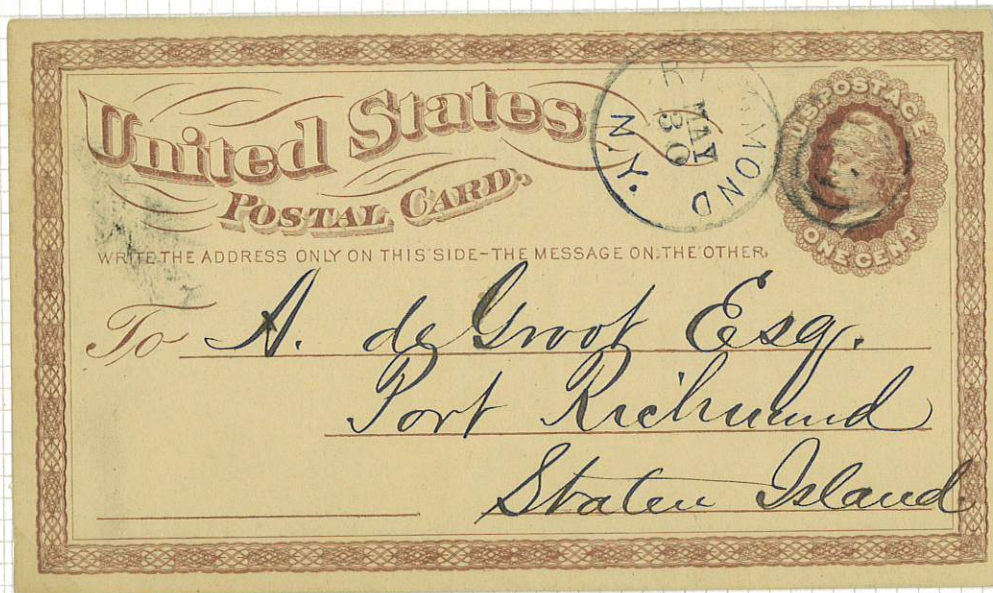 United States
POSTAL CARD.
WRITE THE ADDRESS ONLY ON THIS SIDE–THE MESSAGE ON THE OTHER
U.S. POSTAGE
ONE CENT
MAY
30
N.Y.
To A. de Groot Esq.
Port Richmond
Staten Island